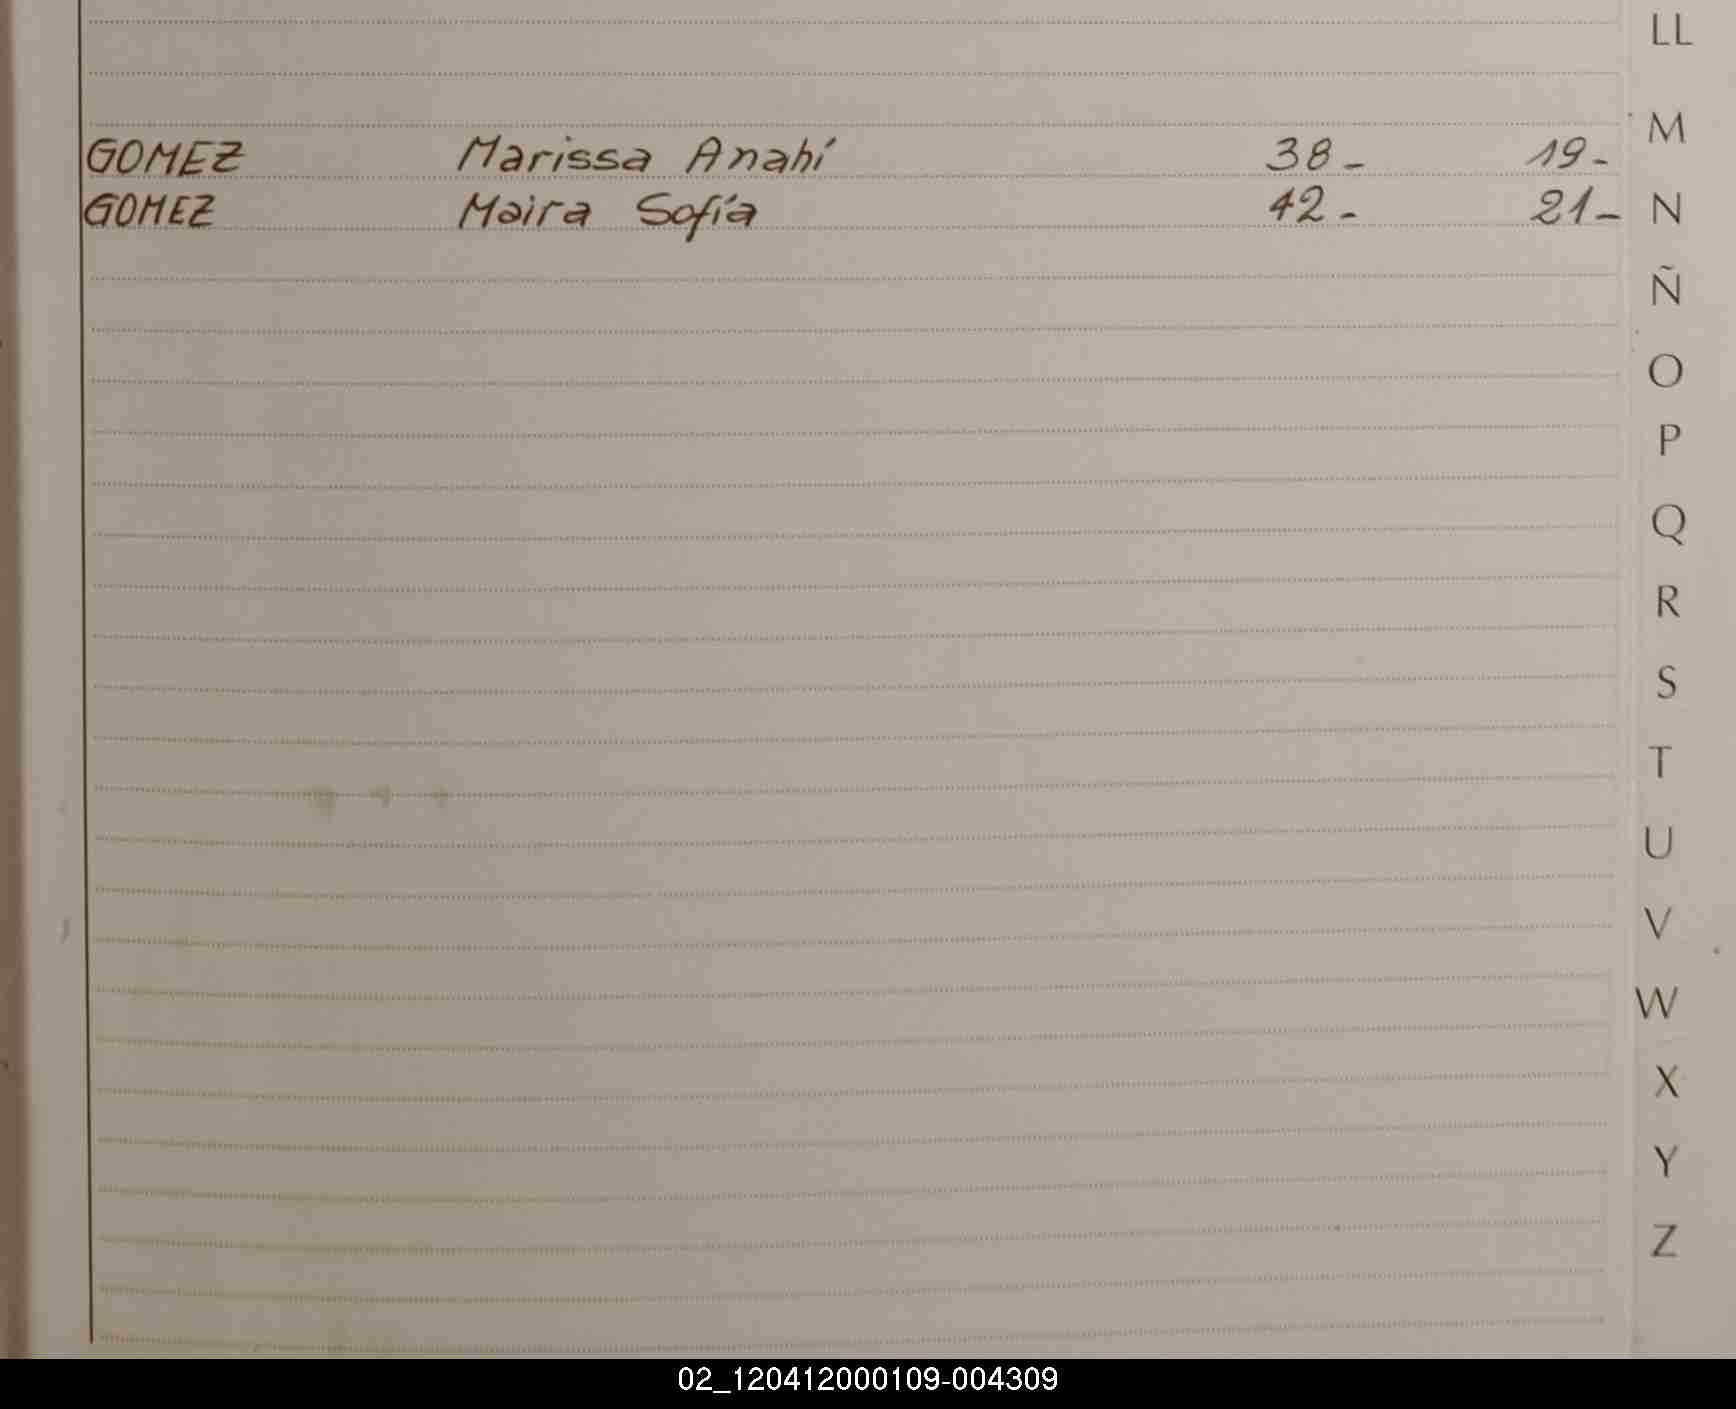 LL
M
GOMEZ Marissa Anahí 38- 19-
GOMEZ Maira Sofía 42- 21-
N
Ñ
O
P
Q
R
S
T
U
V
W
X
Y
Z
02_120412000109-004309